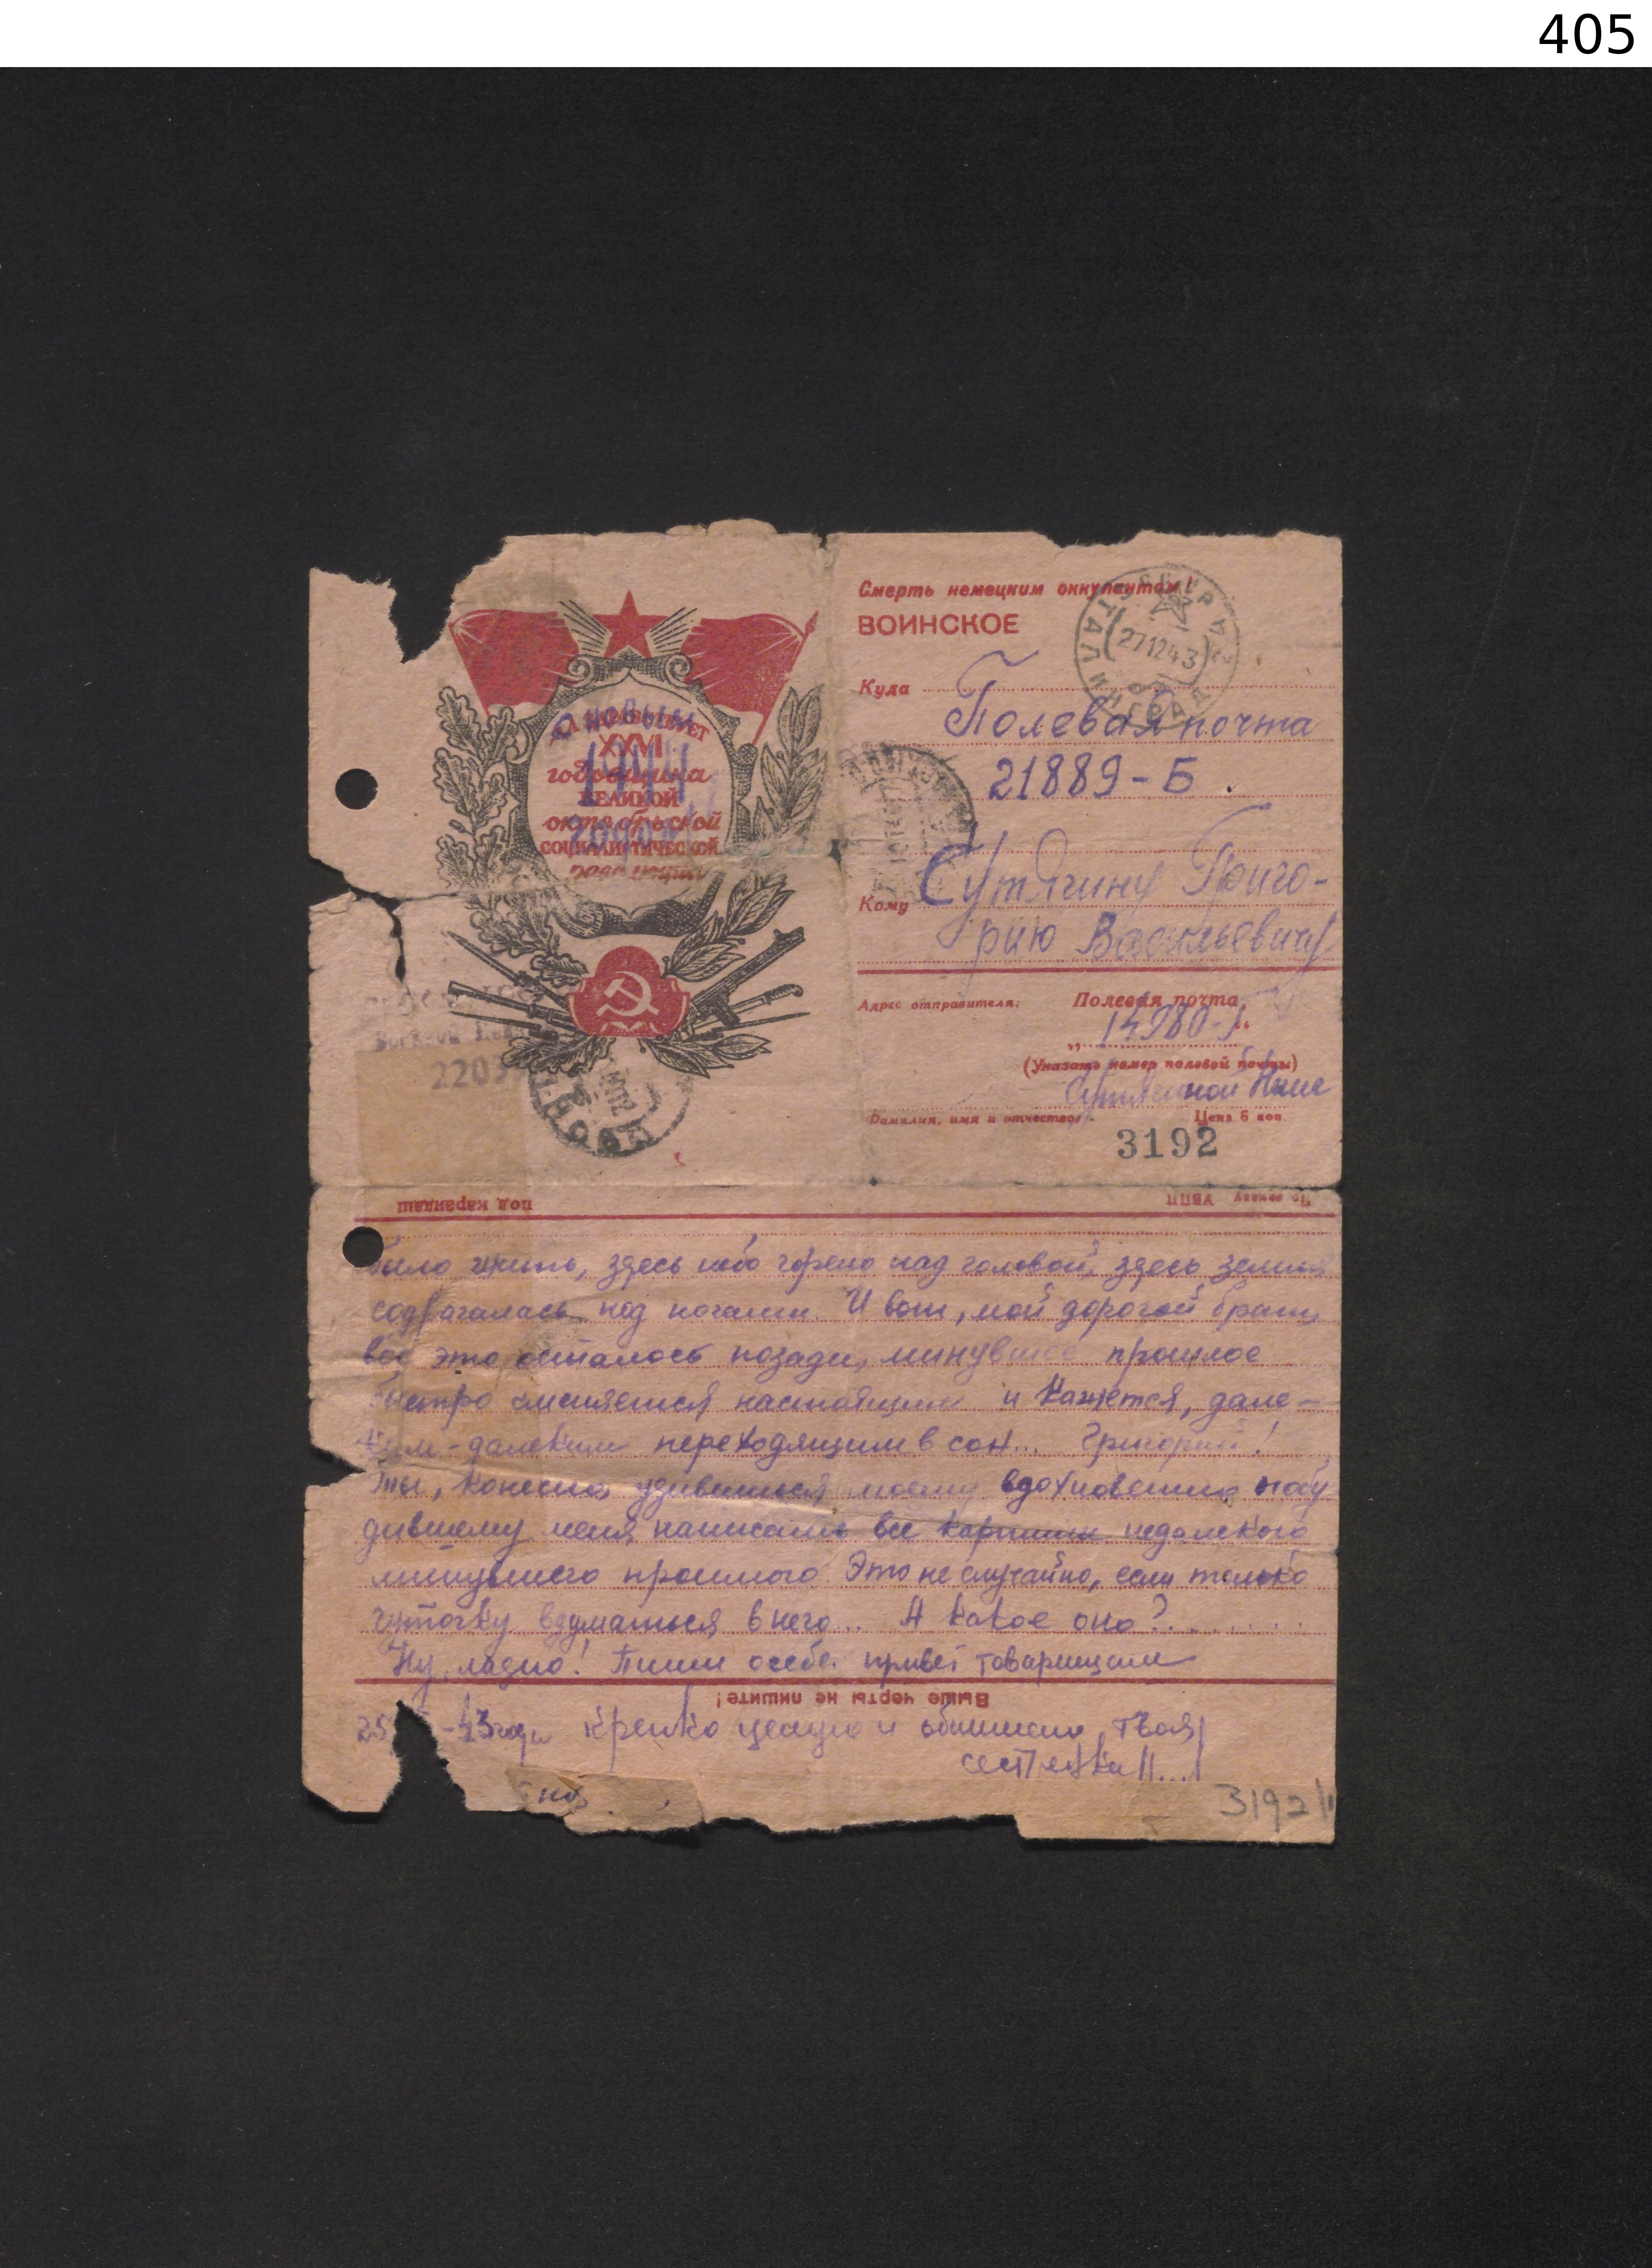 405
Смерть немецким оккупантам!
ВОИНСКОЕ
Куда
Полевая почта
21889 - Б.
Кому Сутягину Григо-
рию Васильевичу
Адрес отправителя: Полевая почта
14980-
(Указать номер полевой почты)
Сутягиной Нине
Фамилия, имя и отчество Цена 6 коп
3192
27 12 43
СТАЛИНГРАД
ДА ЗДРАВСТВУЕТ
XXVI
годовщина
ВЕЛИКОЙ
октябрьской
СОЦИАЛИСТИЧЕСКОЙ
революции
С новым
1944
годом!
под карандаш
УВПП
было жить, здесь небо горело над головой, здесь земля
содрагалась под ногами. И вот, мой дорогой брат,
всё это осталось позади, минувшее прошлое
быстро сменяется настоящим и кажется, дале-
ким-далеким переходящим в сон... Григорий!
Ты, конечно, удивишься моему вдохновению побу
дившему меня написать все картины недалекого
минувшего прошлого. Это не случайно, если только
чуточку вдуматься в него... А какое оно?........
Ну, ладно! Пиши о себе. привет товарищам
Выше черты не пишите!
25 -43 года крепко целую и обнимаю твоя
сестренка Н...
3192